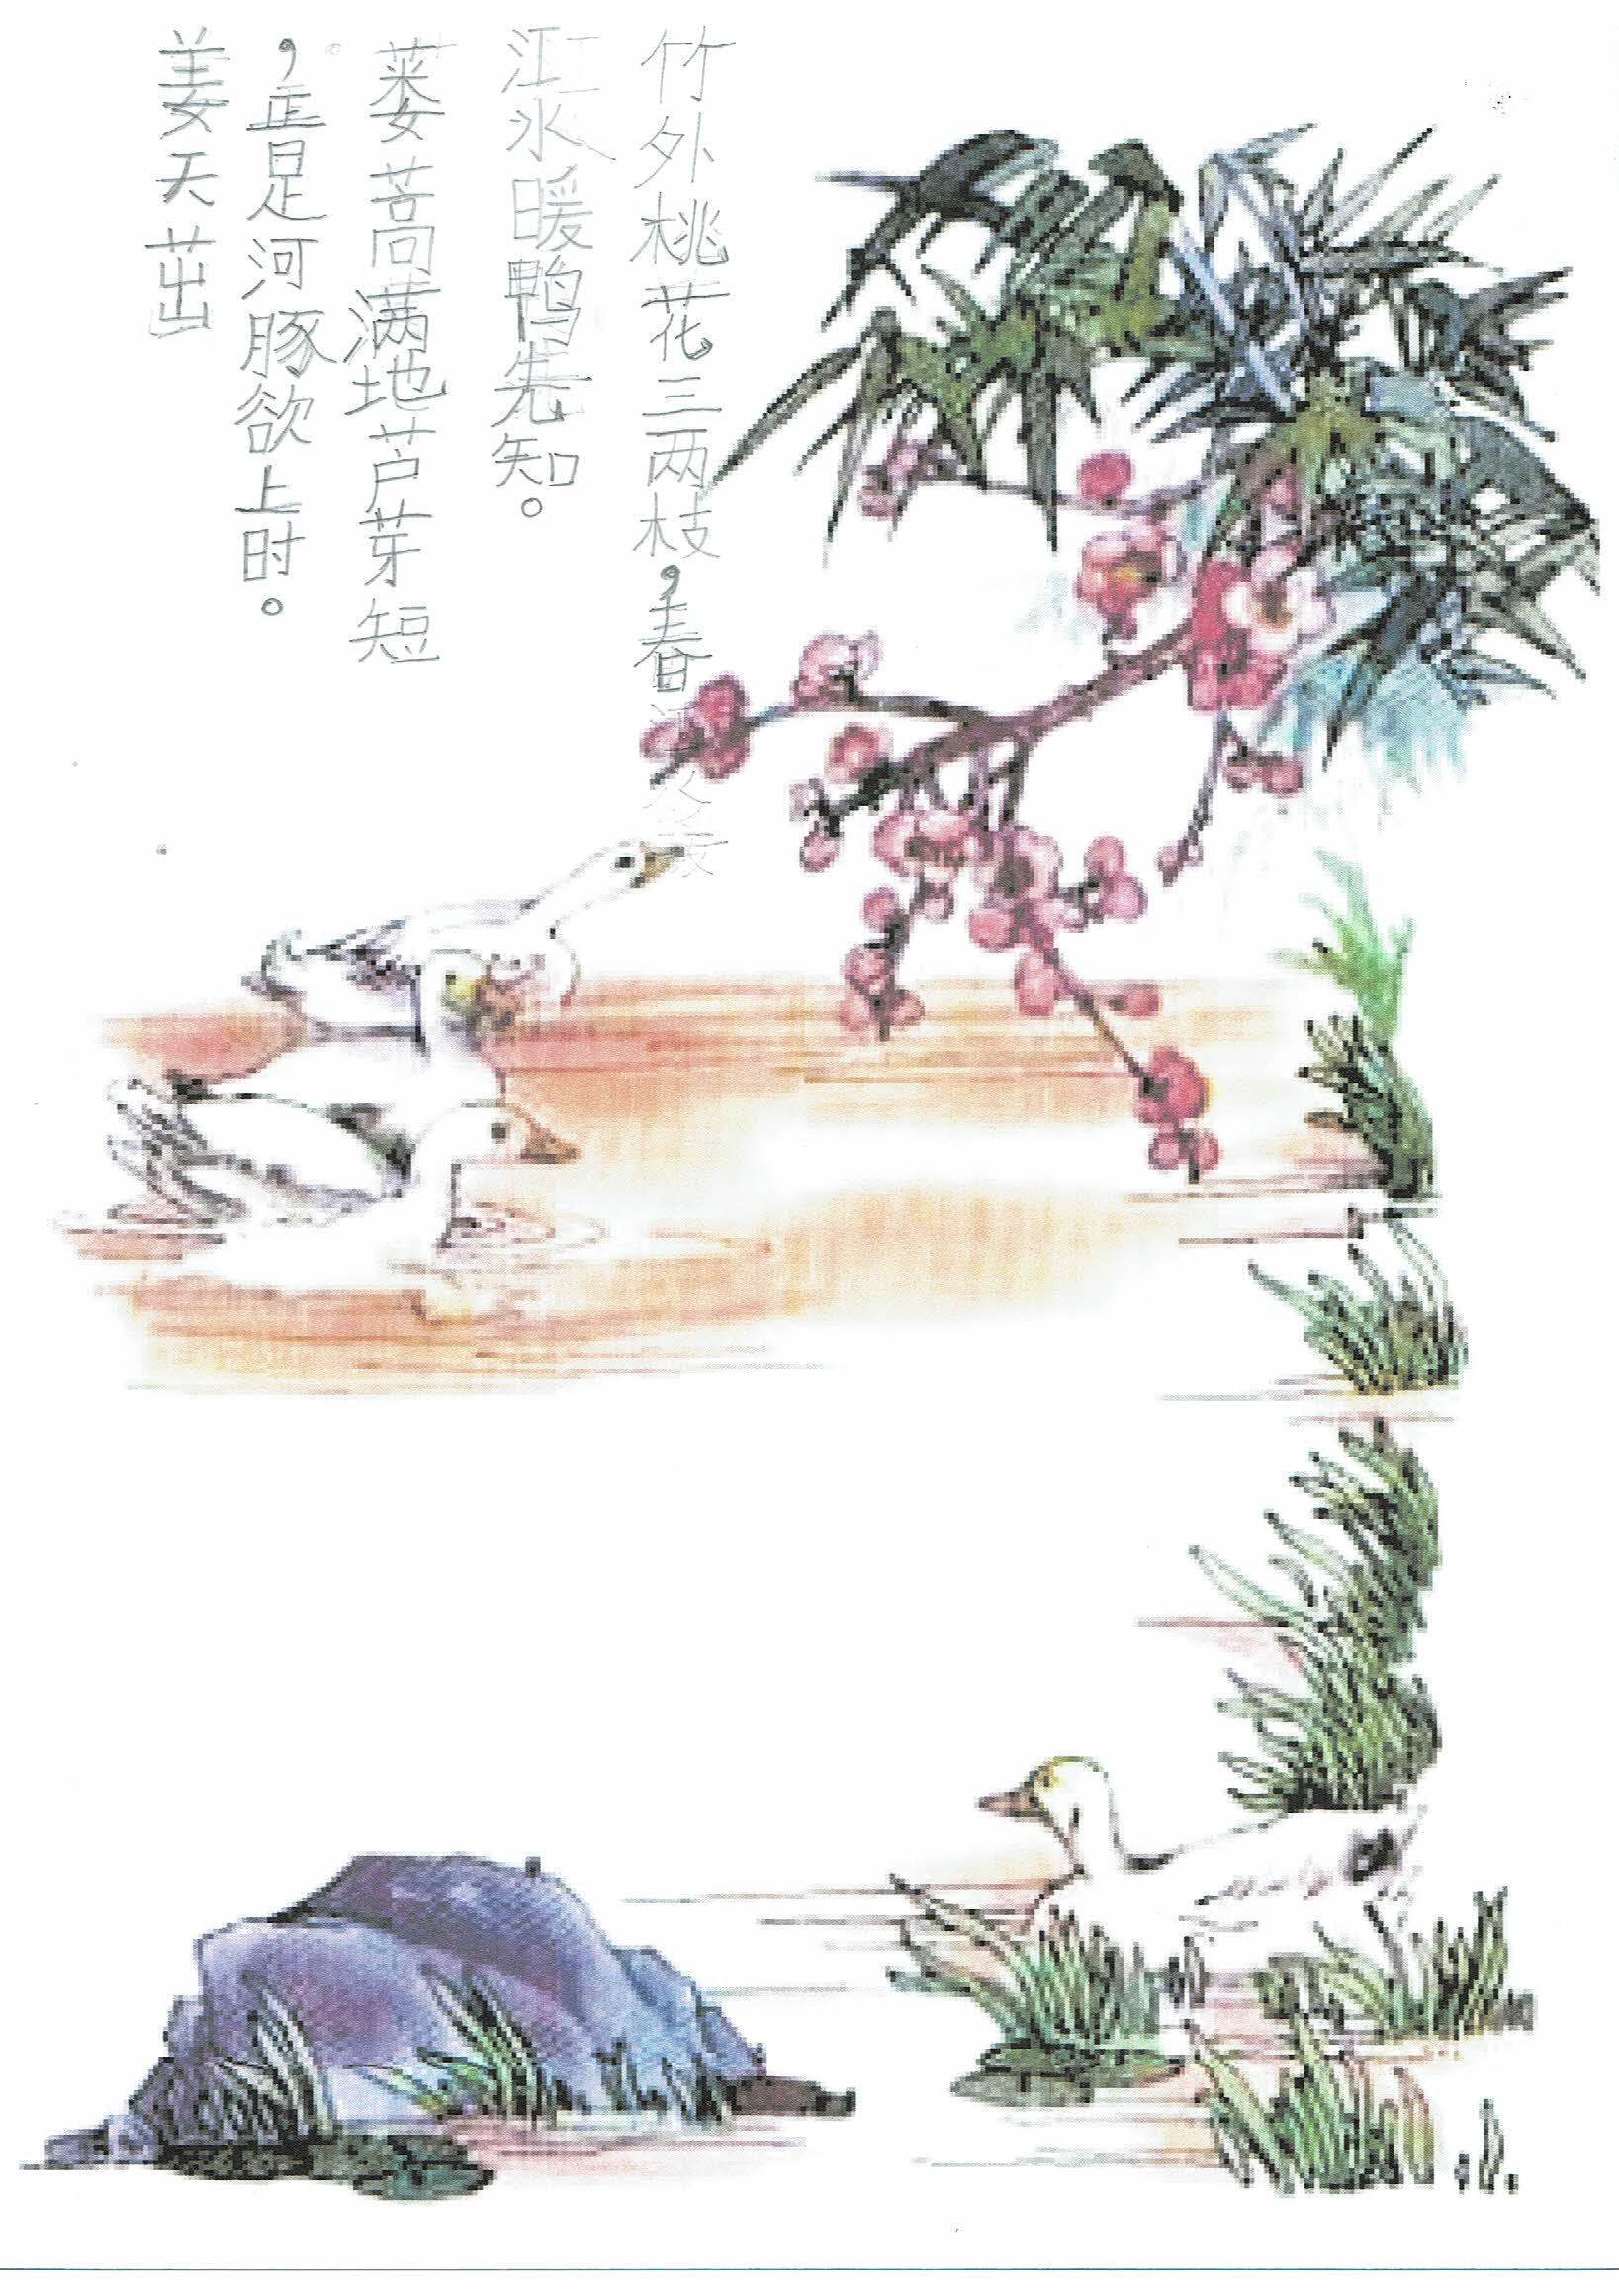 竹外桃花三两枝，春
江水暖鸭先知。
蒌蒿满地芦芽短
，正是河豚欲上时。
姜天茁